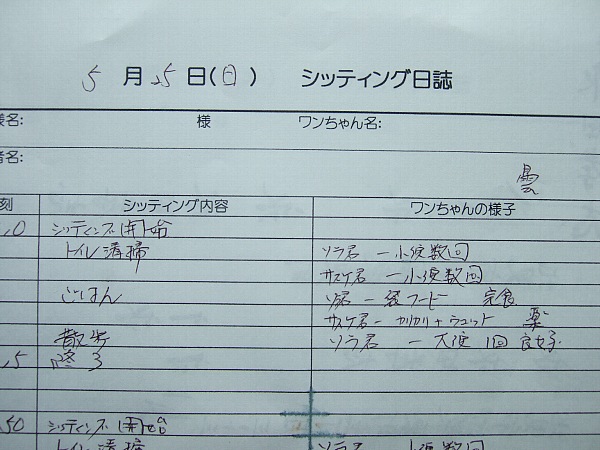 5月25日(日) シッティング日誌
様名: 様 ワンちゃん名:
者名:
曇
刻 シッティング内容 ワンちゃんの様子
0 シッティング開始
トイレ清掃 ソラ君 ー小便数回
サスケ君 ー小便数回
ごはん ソラ君 ー 袋フード 完食
サスケ君ー カリカリ+ウェット 薬
散歩 ソラ君 ー 大便 1回 良好
5 終了
50 シッティング開始
トイレ清掃 ソラ君 ー小便数回